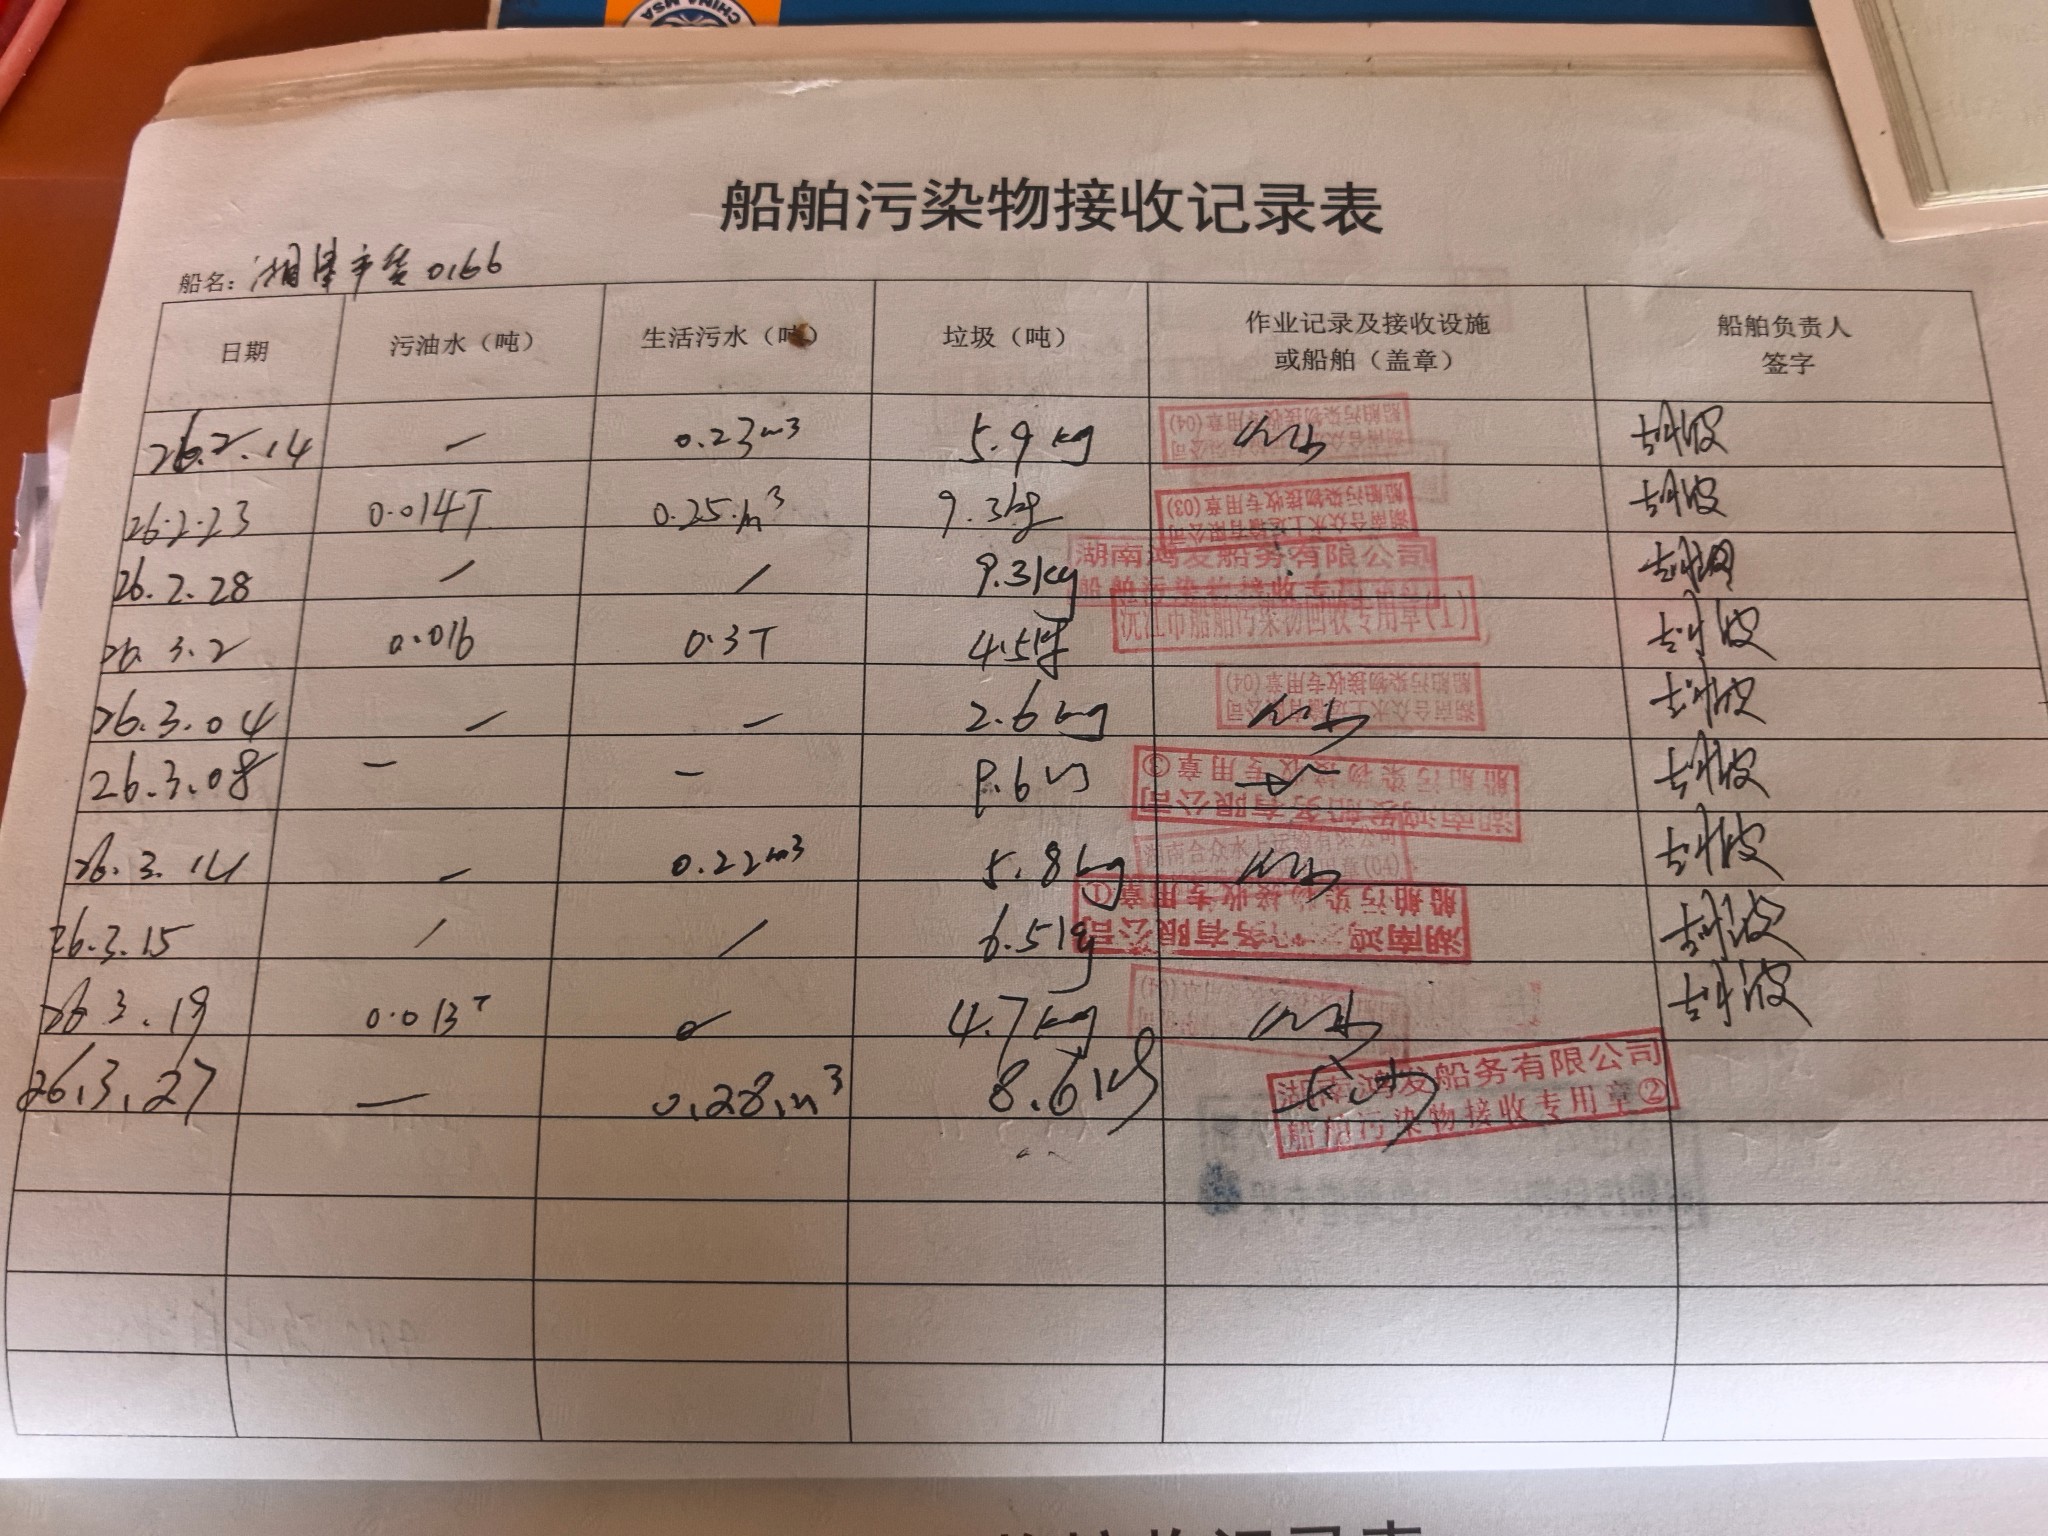 CHINA MSA
船舶污染物接收记录表
船名: 湘 货 0166
日期 污油水（吨） 生活污水（吨） 垃圾（吨） 作业记录及接收设施或船舶（盖章） 船舶负责人签字
26.2.14 — 0.23m³ 5.9kg 湖南合众水上运输有限公司 船舶污染物接收专用章(04)
26.2.23 0.014T 0.25m³ 9.3kg 湖南合众水上运输有限公司 船舶污染物接收专用章(03)
26.2.28 / / 9.3kg 湖南鸿发船务有限公司 船舶污染物接收专用章
26.3.2 0.016 0.3T 4.5kg 沅江市船舶污染物回收专用章(1)
26.3.04 — — 2.6kg 湖南合众水上运输有限公司 船舶污染物接收专用章(04)
26.3.08 — — 8.6 湖南鸿发船务有限公司 船舶污染物接收专用章③
26.3.14 — 0.22m³ 5.8kg 湖南合众水上运输有限公司 (04)
26.3.15 / / 6.5kg 湖南鸿 务有限公司 船舶污染物接收专用章①
26.3.19 0.013T 4.7kg
26.3.27 — 0.28m³ 8.6kg 湖南鸿发船务有限公司 船舶污染物接收专用章②